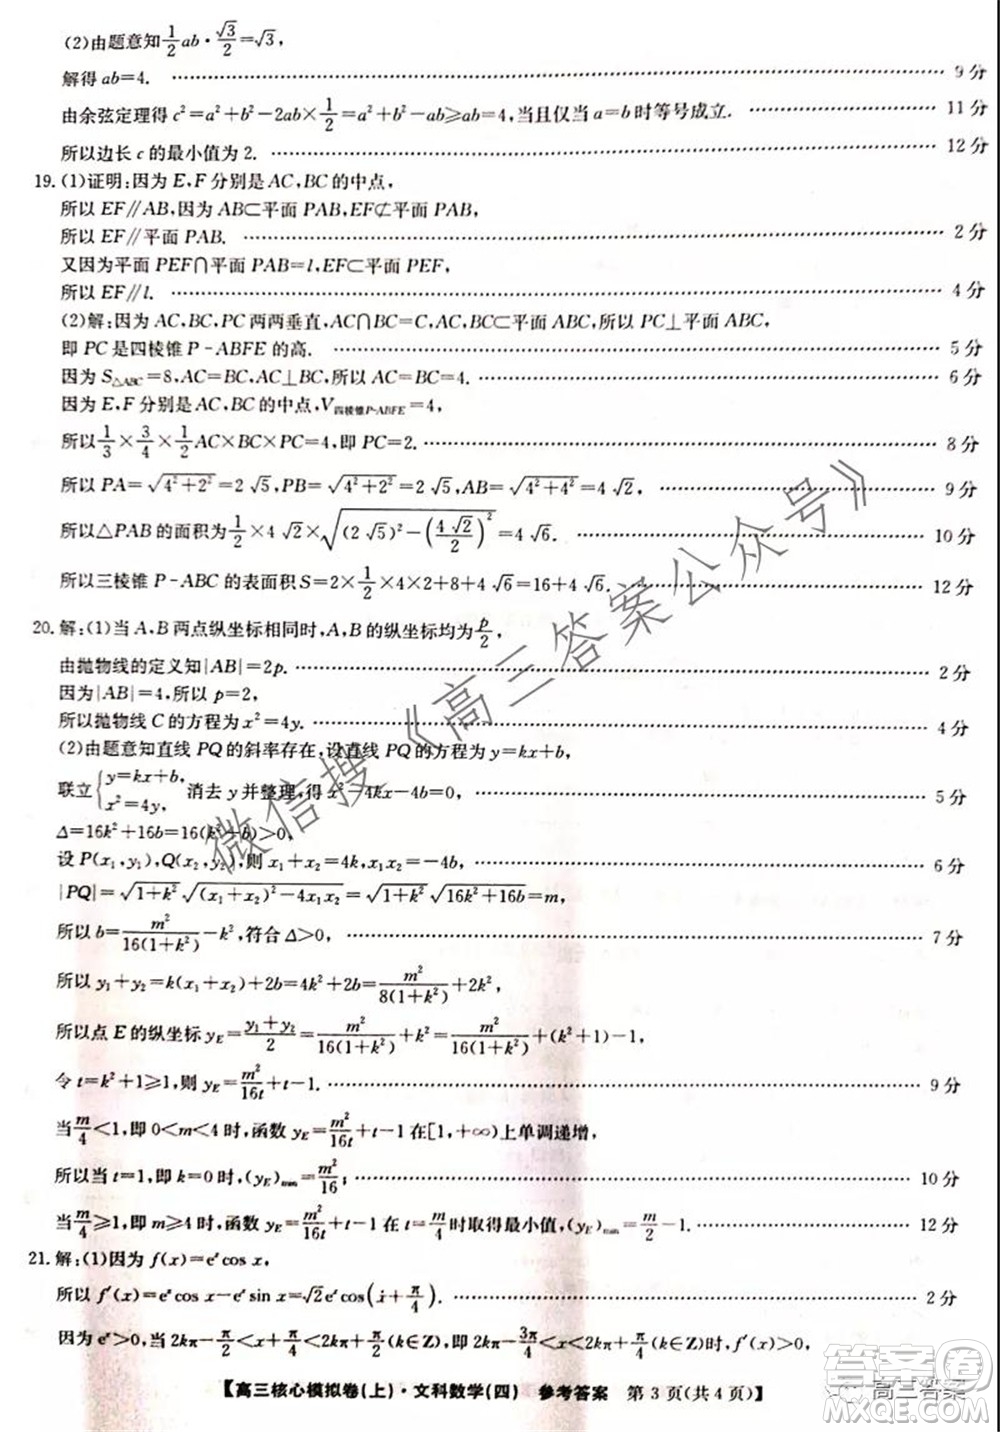 (2)由题意知 1/2 ab·√3/2=√3,
解得 ab=4. …… 9分
由余弦定理得 c²=a²+b²-2ab×1/2=a²+b²-ab≥ab=4,当且仅当 a=b 时等号成立. …… 11分
所以边长 c 的最小值为 2. …… 12分
19.(1)证明:因为 E,F 分别是 AC,BC 的中点,
所以 EF∥AB,因为 AB⊂平面 PAB,EF⊄平面 PAB,
所以 EF∥平面 PAB. …… 2分
又因为平面 PEF∩平面 PAB=l,EF⊂平面 PEF,
所以 EF∥l. …… 4分
(2)解:因为 AC,BC,PC 两两垂直,AC∩BC=C,AC,BC⊂平面 ABC,所以 PC⊥平面 ABC,
即 PC 是四棱锥 P-ABFE 的高. …… 5分
因为 S△ABC=8,AC=BC,AC⊥BC,所以 AC=BC=4. …… 6分
因为 E,F 分别是 AC,BC 的中点,V四棱锥P-ABFE=4,
所以 1/3×3/4×1/2 AC×BC×PC=4,即 PC=2. …… 8分
所以 PA=√(4²+2²)=2√5,PB=√(4²+2²)=2√5,AB=√(4²+4²)=4√2, …… 9分
所以△PAB 的面积为 1/2×4√2×√((2√5)²-(4√2/2)²)=4√6. …… 10分
所以三棱锥 P-ABC 的表面积 S=2×1/2×4×2+8+4√6=16+4√6. …… 12分
20.解:(1)当 A,B 两点纵坐标相同时,A,B 的纵坐标均为 p/2,
由抛物线的定义知|AB|=2p. …… 2分
因为|AB|=4,所以 p=2,
所以抛物线 C 的方程为 x²=4y. …… 4分
(2)由题意知直线 PQ 的斜率存在,设直线 PQ 的方程为 y=kx+b,
联立{y=kx+b, x²=4y, 消去 y 并整理,得 x²-4kx-4b=0, …… 5分
Δ=16k²+16b=16(k²+b)>0,
设 P(x₁,y₁),Q(x₂,y₂),则 x₁+x₂=4k,x₁x₂=-4b, …… 6分
|PQ|=√(1+k²) √((x₁+x₂)²-4x₁x₂)=√(1+k²) √(16k²+16b)=m,
所以 b=m²/16(1+k²)-k²,符合 Δ>0, …… 7分
所以 y₁+y₂=k(x₁+x₂)+2b=4k²+2b=m²/8(1+k²)+2k²,
所以点 E 的纵坐标 y_E=(y₁+y₂)/2=m²/16(1+k²)+k²=m²/16(1+k²)+(k²+1)-1,
令 t=k²+1≥1,则 y_E=m²/16t+t-1. …… 9分
当 m/4<1,即 0<m<4 时,函数 y_E=m²/16t+t-1 在[1,+∞)上单调递增,
所以当 t=1,即 k=0 时,(y_E)min=m²/16; …… 10分
当 m/4≥1,即 m≥4 时,函数 y_E=m²/16t+t-1 在 t=m/4 时取得最小值,(y_E)min=m/2-1. …… 12分
21.解:(1)因为 f(x)=eˣcos x,
所以 f′(x)=eˣcos x-eˣsin x=√2eˣcos(x+π/4). …… 2分
因为 eˣ>0,当 2kπ-π/2<x+π/4<2kπ+π/2(k∈Z),即 2kπ-3π/4<x<2kπ+π/4(k∈Z)时,f′(x)>0,
【高三核心模拟卷(上)·文科数学(四) 参考答案 第 3 页(共 4 页)】
微信搜《高三答案公众号》
答案圈
高三答案
MXQE.COM